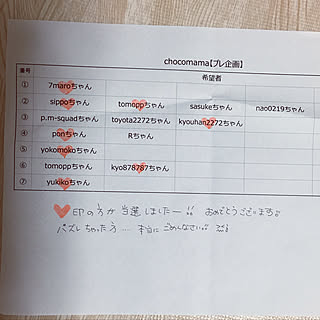 chocomama【プレ企画】
番号 希望者
① 7maroちゃん
② sippoちゃん tomoppちゃん sasukeちゃん nao0219ちゃん
③ p.m-squadちゃん toyota2272ちゃん kyouhan2272ちゃん
④ ponちゃん Rちゃん
⑤ yokomokoちゃん
⑥ tomoppちゃん kyo878787ちゃん
⑦ yukikoちゃん
印の方が当選しましたー!! おめでとうございます!!
ハズレちゃった方…… 本当にごめんなさい!!